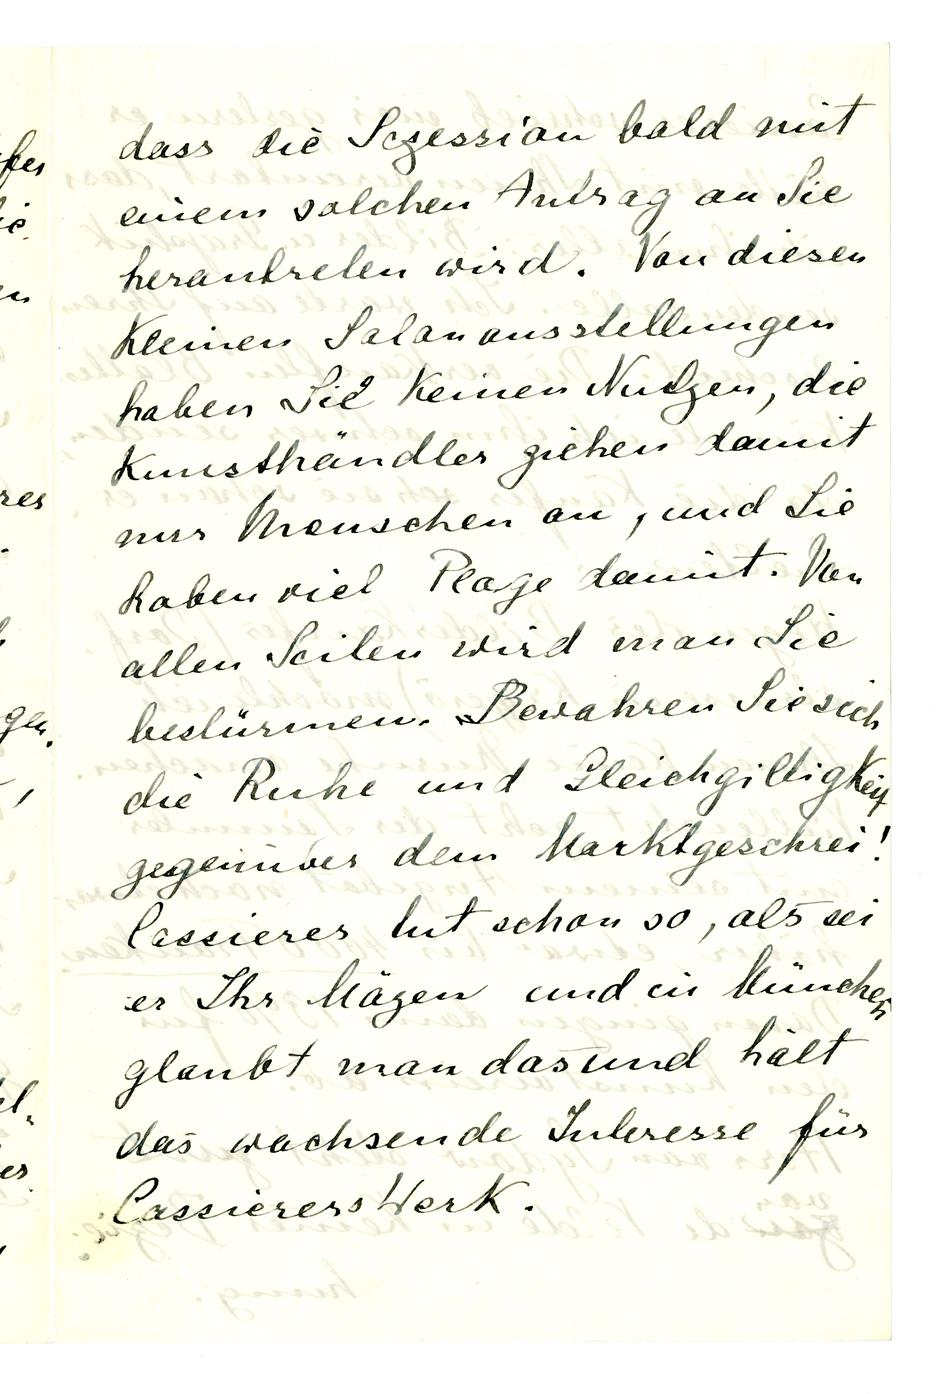 dass die Sezession bald mit
einem solchen Antrag an Sie
herantreten wird. Von diesen
kleinen Salonausstellungen
haben Sie keinen Nutzen, die
Kunsthändler ziehen damit
nur Menschen an, und Sie
haben viel Plage damit. Von
allen Seiten wird man Sie
bestürmen. Bewahren Sie sich
die Ruhe und Gleichgiltigkeit
gegenüber dem Marktgeschrei!
Cassierer tut schon so, als sei
er Ihr Mäzen und in München
glaubt man das und hält
das wachsende Interesse für
Cassierers Werk.